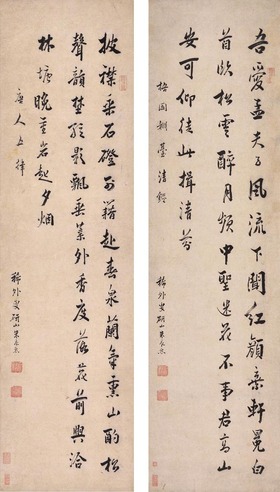 吾愛孟夫子風流下聞紅顏棄軒冕白
首臥松雲醉月頻中聖迷花不事君高山
安可仰徒此揖清芬
稀外叟研山
披襟乘石磴列籍赴春泉蘭氣熏山酌松
聲韻野弦影飄垂葉外香度落花前興洽
林塘晚重岩起夕烟
唐人五律
稀外叟研山